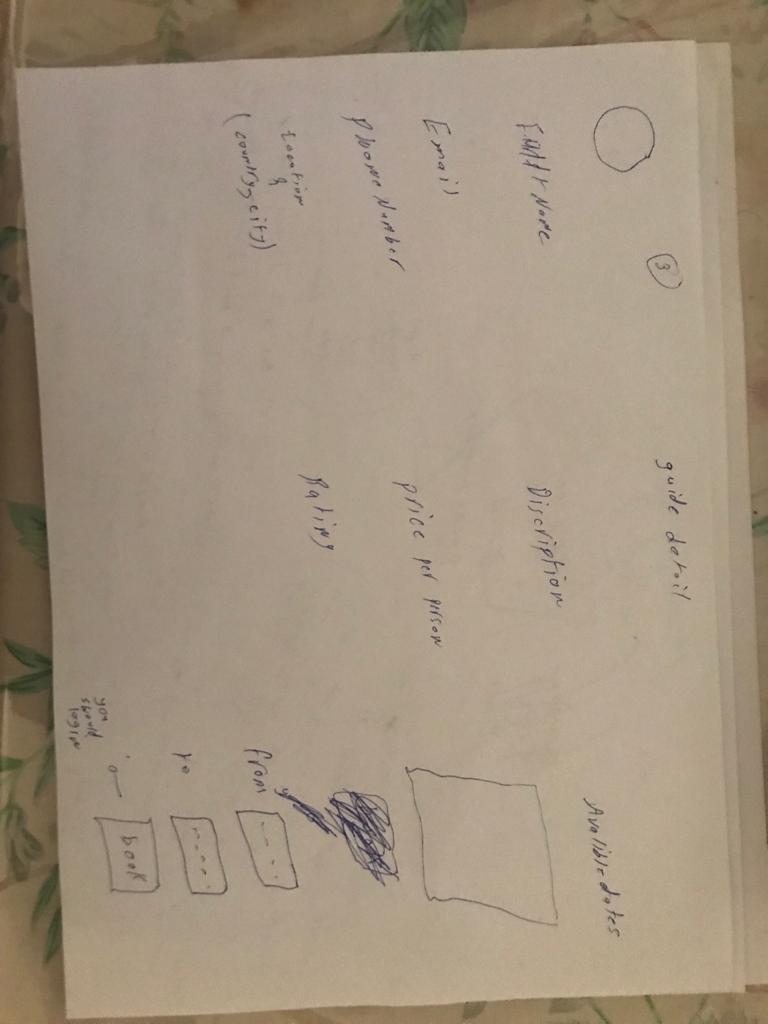 3
guide detail
Name
Email
Phone Number
Location
(country, city)
Discription
price per person
Rating
Avalible dates
from
to
book
you
should
login